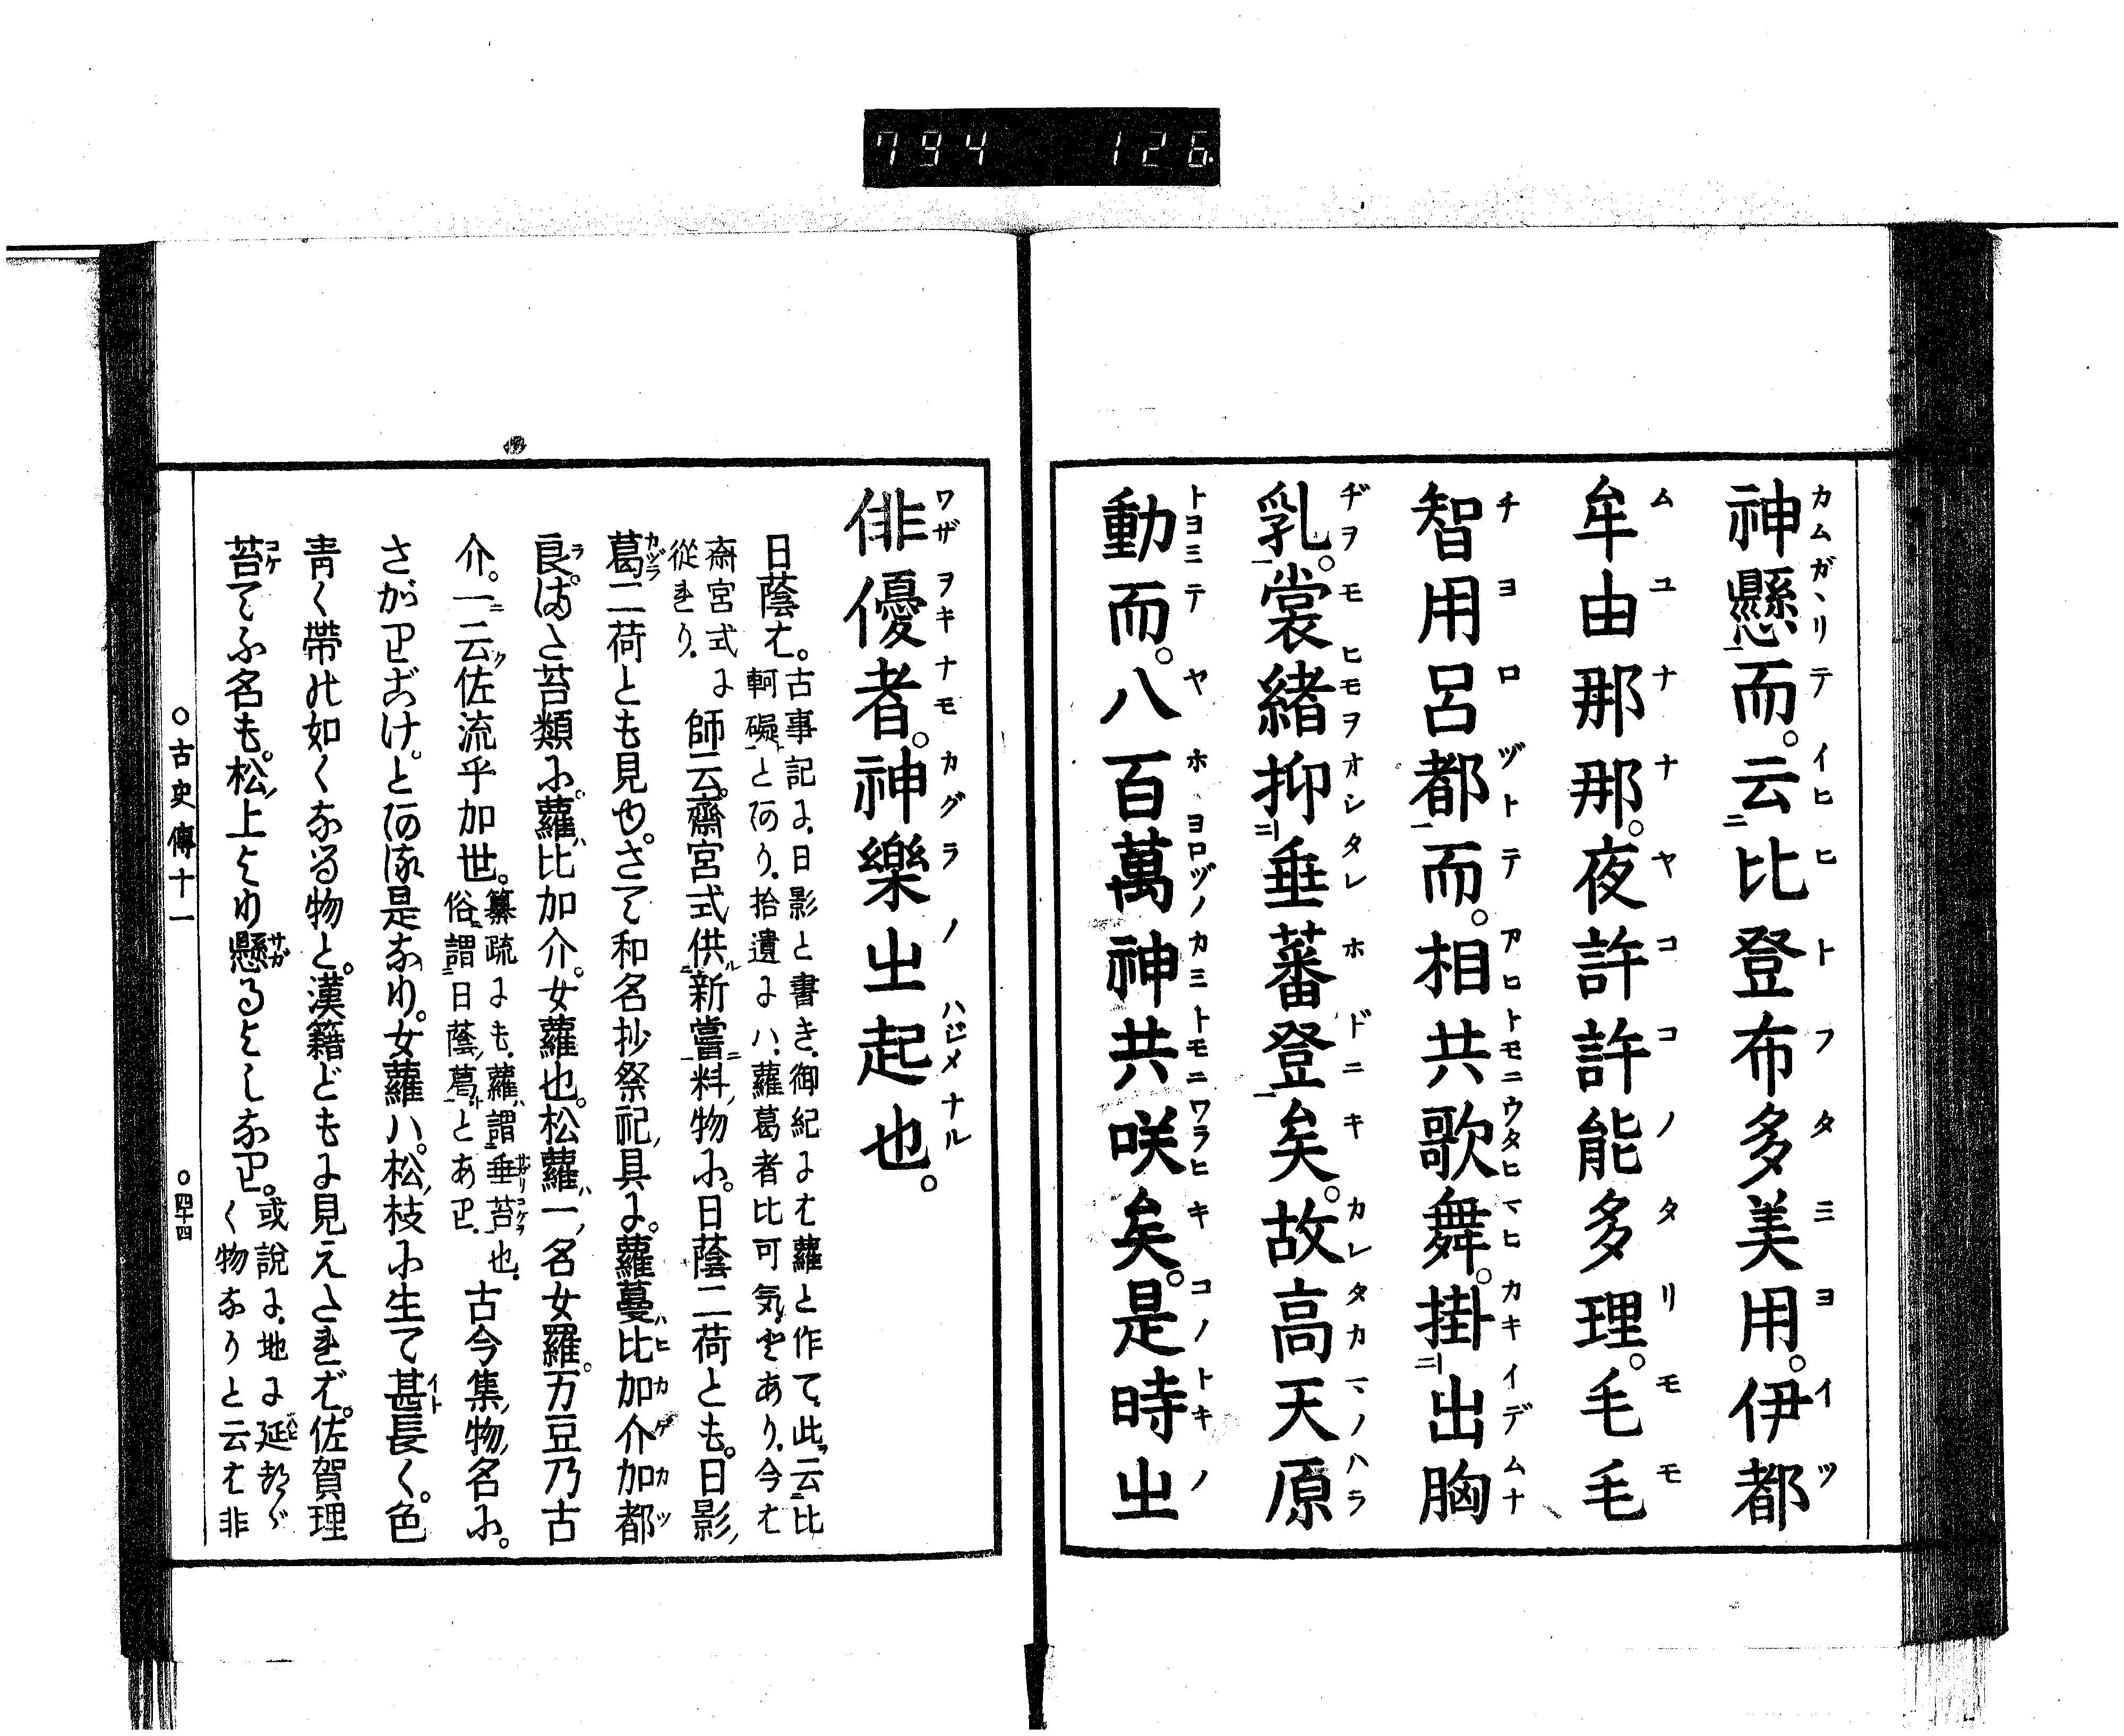 794 126
神懸而。云比登布多美用。伊都
牟由那那。夜許許能多理。毛毛
智用呂都而。相共歌舞。掛出胸
乳。裳緒抑垂蕃登矣。故高天原
動而。八百萬神共咲矣。是時之
俳優者。神樂之起也。
日蔭ハ。古事記に、日影と書き、御紀にハ蘿と作て、此云比
軻礙とあり、拾遺にハ、蘿葛者比可気とあり、今ハ
齋宮式に從れり、師云。齋宮式供新嘗料物に。日蔭二荷とも。日影
葛二荷とも見ゆ。さて和名抄祭祀具に。蘿蔓比加介加都
良。また苔類に。蘿比加介。女蘿也。松蘿一名女羅。万豆乃古
介。一云佐流乎加世。纂疏にも、蘿謂垂苔也、俗謂日蔭葛とあり、古今集物名に。
さがりごけ。とある是なり。女蘿ハ。松枝に生て甚長く。色
靑く帶の如くなる物と。漢籍どもに見えたれば。佐賀理
苔てふ名も。松上より懸るよしなり。或說に、地に延
く物なりと云ハ非
○古史傳十一 ○四十四